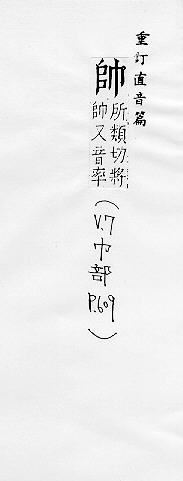 重訂直音篇
帥
所類切將
帥又音率
(V.7 巾部 P.609)